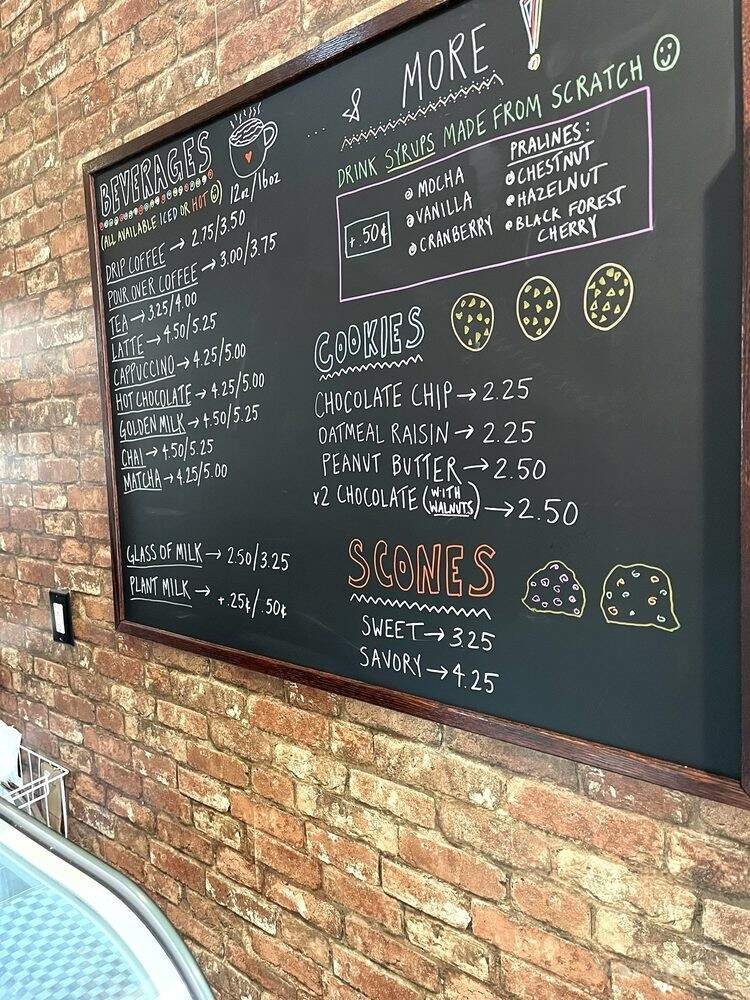 BEVERAGES
(ALL AVAILABLE ICED OR HOT
12oz/16oz
DRIP COFFEE → 2.75/3.50
POUR OVER COFFEE → 3.00/3.75
TEA → 3.25/4.00
LATTE → 4.50/5.25
CAPPUCCINO → 4.25/5.00
HOT CHOCOLATE → 4.25/5.00
GOLDEN MILK → 4.50/5.25
CHAI → 4.50/5.25
MATCHA → 4.25/5.00
GLASS OF MILK → 2.50/3.25
PLANT MILK → +.25¢/.50¢
.... & MORE
DRINK SYRUPS MADE FROM SCRATCH
+.50¢
MOCHA
VANILLA
CRANBERRY
PRALINES:
CHESTNUT
HAZELNUT
BLACK FOREST
CHERRY
COOKIES
CHOCOLATE CHIP → 2.25
OATMEAL RAISIN → 2.25
PEANUT BUTTER → 2.50
x2 CHOCOLATE (WITH WALNUTS) → 2.50
SCONES
SWEET → 3.25
SAVORY → 4.25